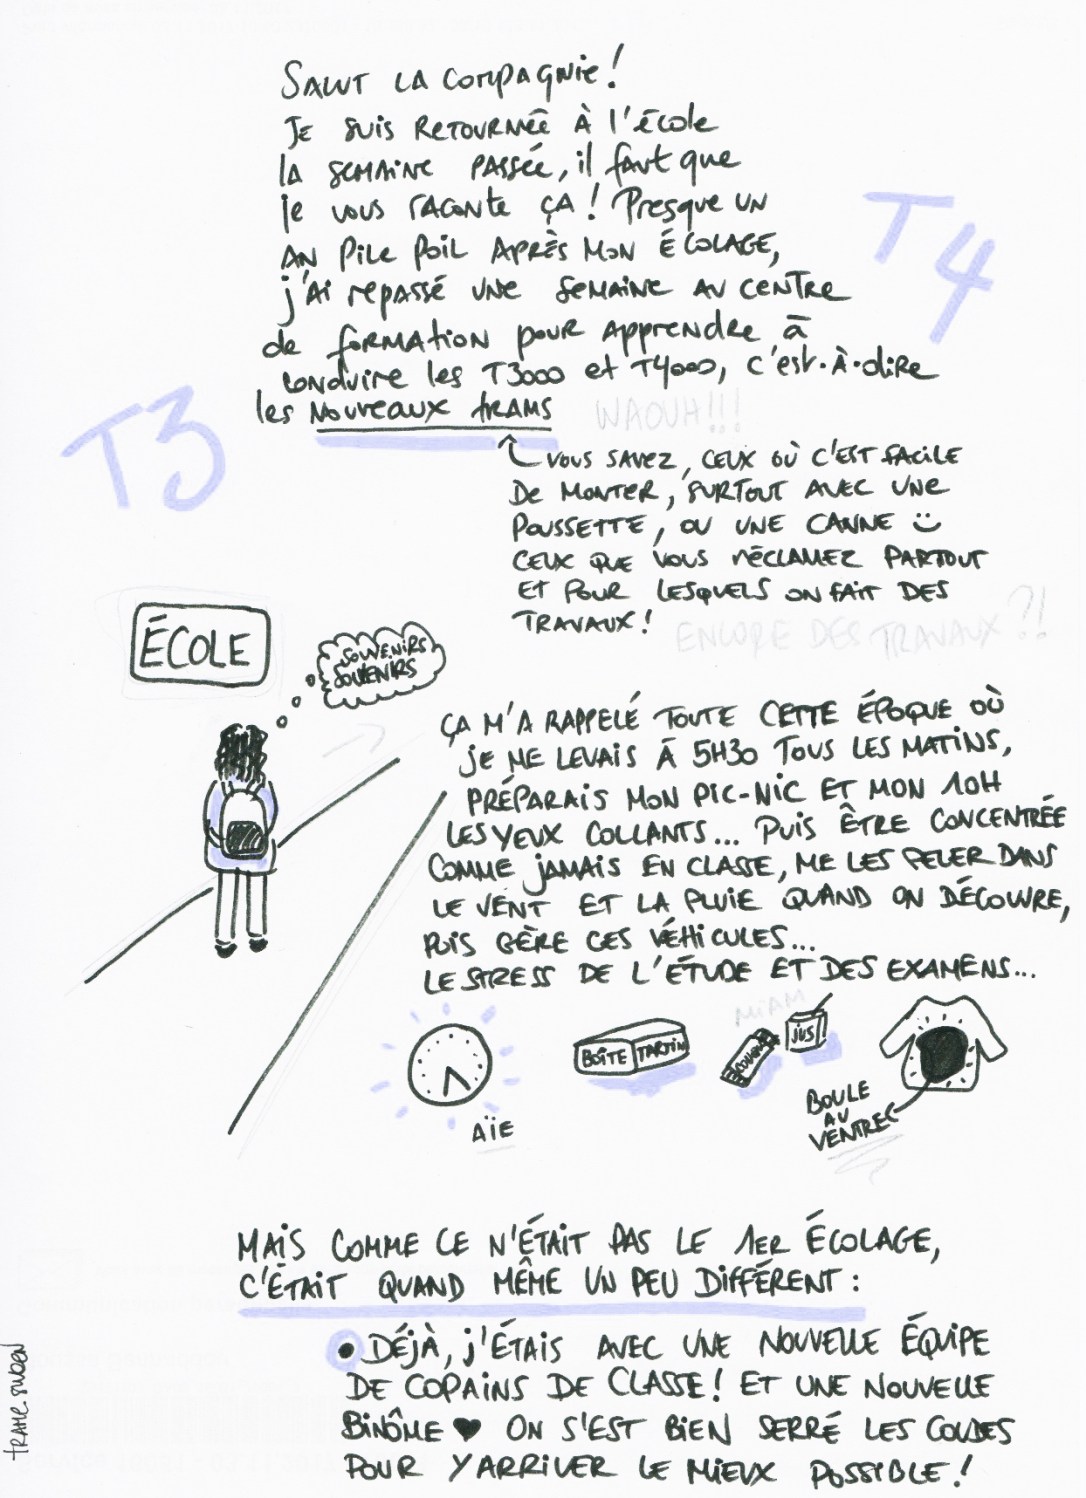 SALUT LA COMPAGNIE !
JE SUIS RETOURNÉE À l'école
la SEMAINE PASSÉE, il faut que
je vous raconte ça ! Presque UN
AN Pile Poil APRÈS MON ÉCOLAGE,
j'ai repassé une semaine au centre
de formation pour apprendre à
conduire les T3000 et T4000, c'est-à-dire
les nouveaux trams
WAOUH!!!
T4
T3
VOUS SAVEZ, CEUX OÙ C'EST FACILE
DE MONTER, SURTOUT AVEC UNE
POUSSETTE, OU UNE CANNE
CEUX QUE VOUS RÉCLAMEZ PARTOUT
ET POUR LESQUELS ON FAIT DES
TRAVAUX !
ENCORE DES TRAVAUX ?!
ÉCOLE
SOUVENIRS
SOUVENIRS
ÇA M'A RAPPELÉ TOUTE CETTE ÉPOQUE OÙ
JE ME LEVAIS À 5H30 TOUS LES MATINS,
PRÉPARAIS MON PIC-NIC ET MON 10H
LES YEUX COLLANTS... PUIS ÊTRE CONCENTRÉE
COMME JAMAIS EN CLASSE, ME LES PELER DANS
LE VENT ET LA PLUIE QUAND ON DÉCOUVRE,
PUIS GÈRE CES VÉHICULES...
LE STRESS DE L'ÉTUDE ET DES EXAMENS...
AÏE
BOÎTE TARTIN
MIAM
JUS
BOULE
AU
VENTRE
MAIS COMME CE N'ÉTAIT PAS LE 1ER ÉCOLAGE,
C'ÉTAIT QUAND MÊME UN PEU DIFFÉRENT :
• DÉJÀ, J'ÉTAIS AVEC UNE NOUVELLE ÉQUIPE
DE COPAINS DE CLASSE ! ET UNE NOUVELLE
BINÔME ♥ ON S'EST BIEN SERRÉ LES COUDES
POUR Y ARRIVER LE MIEUX POSSIBLE !